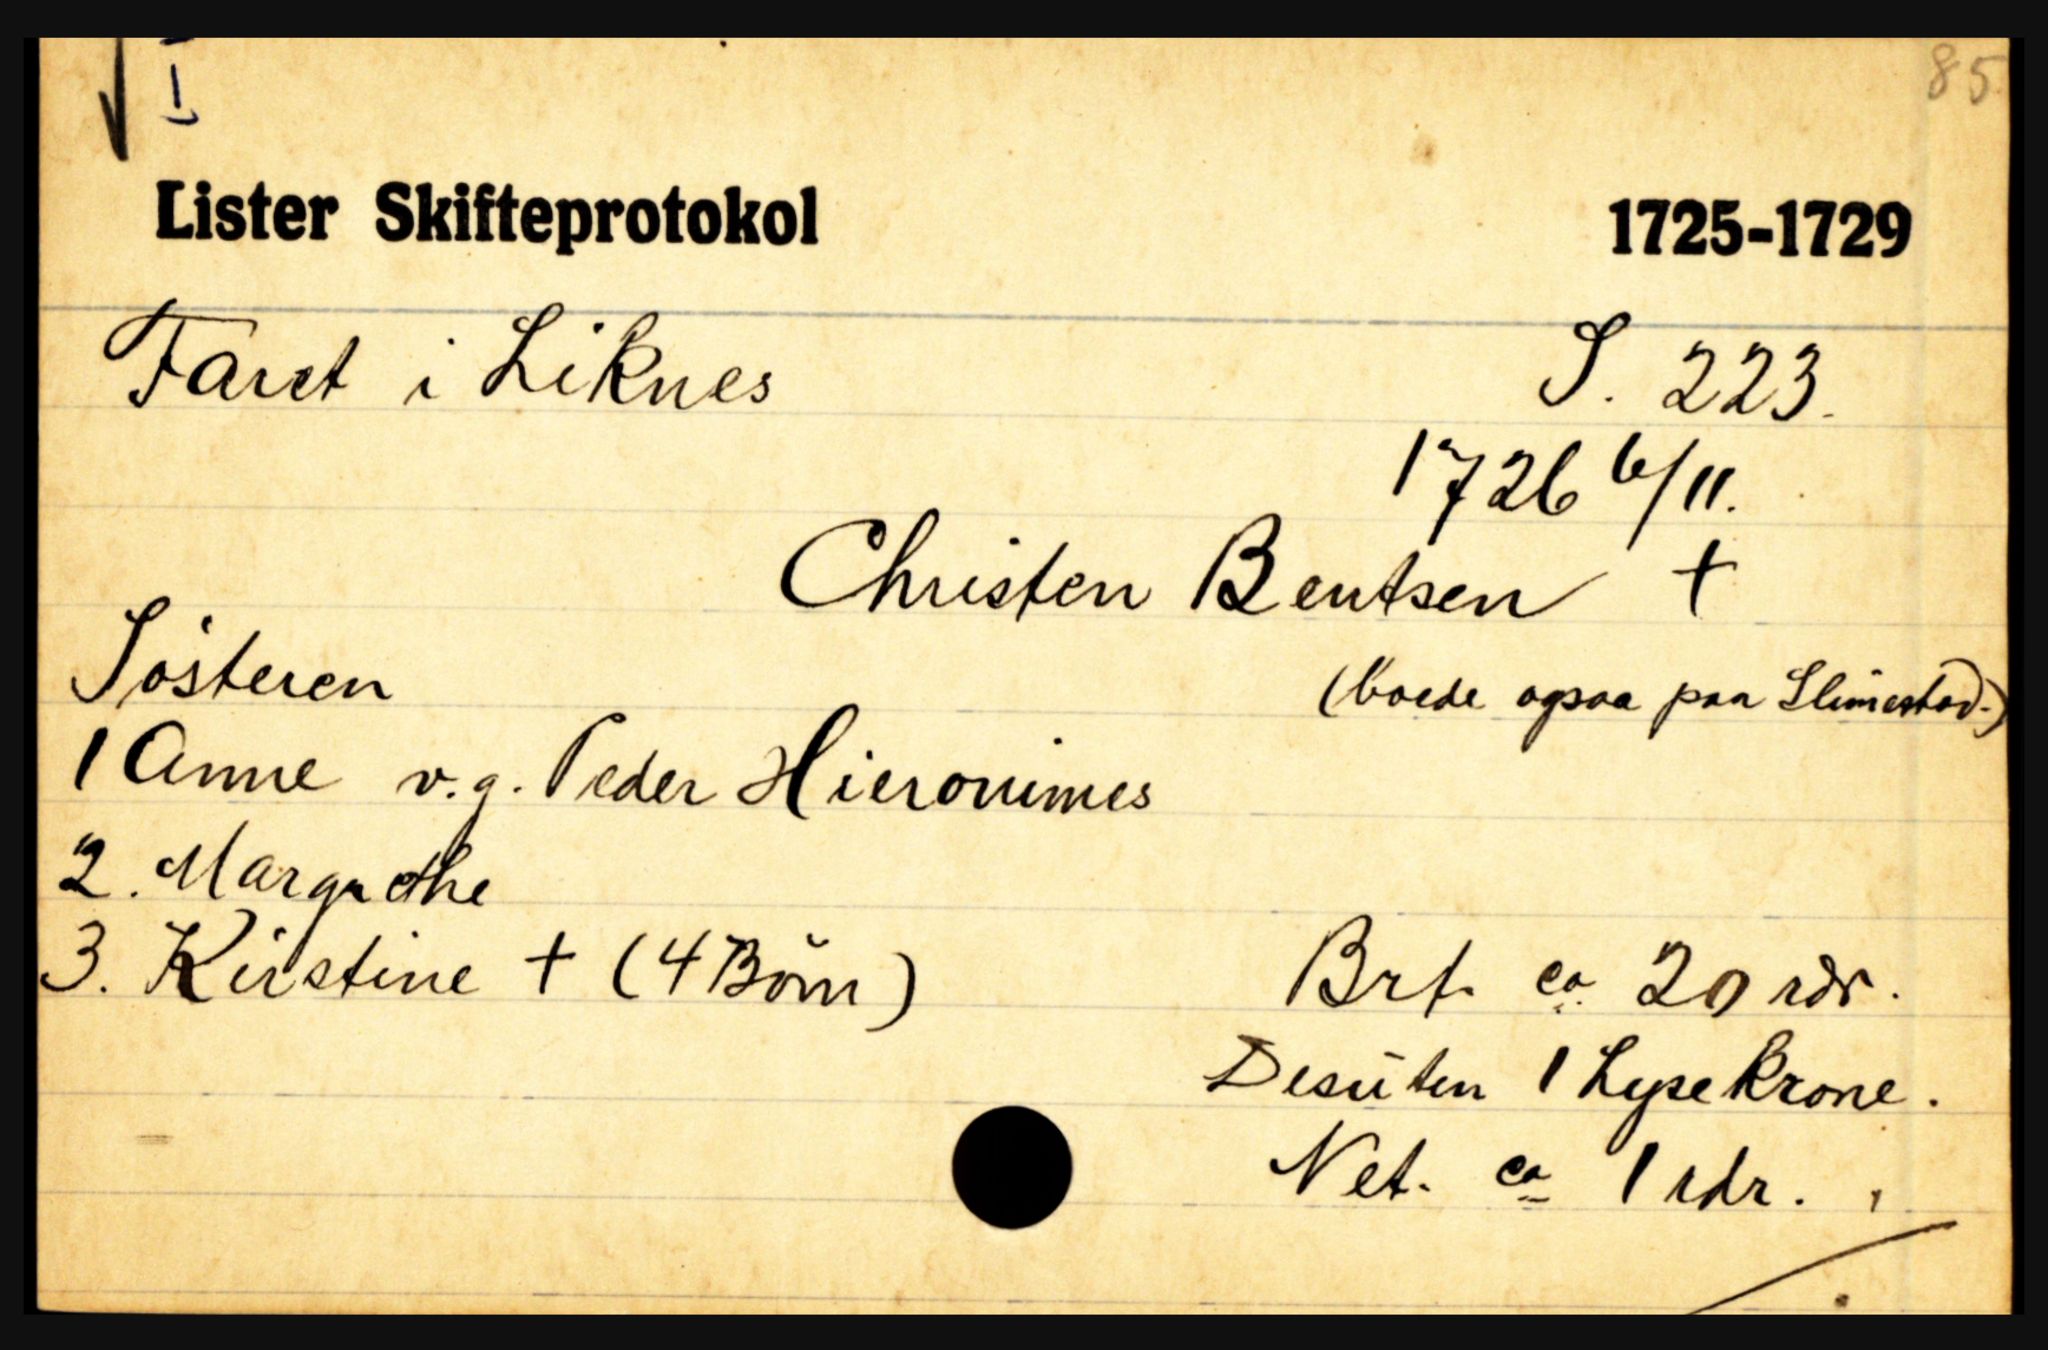 85
Lister Skifteprotokol 1725-1729
Faret i Liknes S. 223.
1726 6/11.
Christen Bentsen +
Søsteren (boede ogsaa paa Slimestad.)
1 Anne v.g. Peder Hieronimes
2. Margrethe
3. Kirstine + (4 Börn) Brt. ca 20 rdr.
Desüten 1 Lysekrone.
Net. ca 1 rdr.